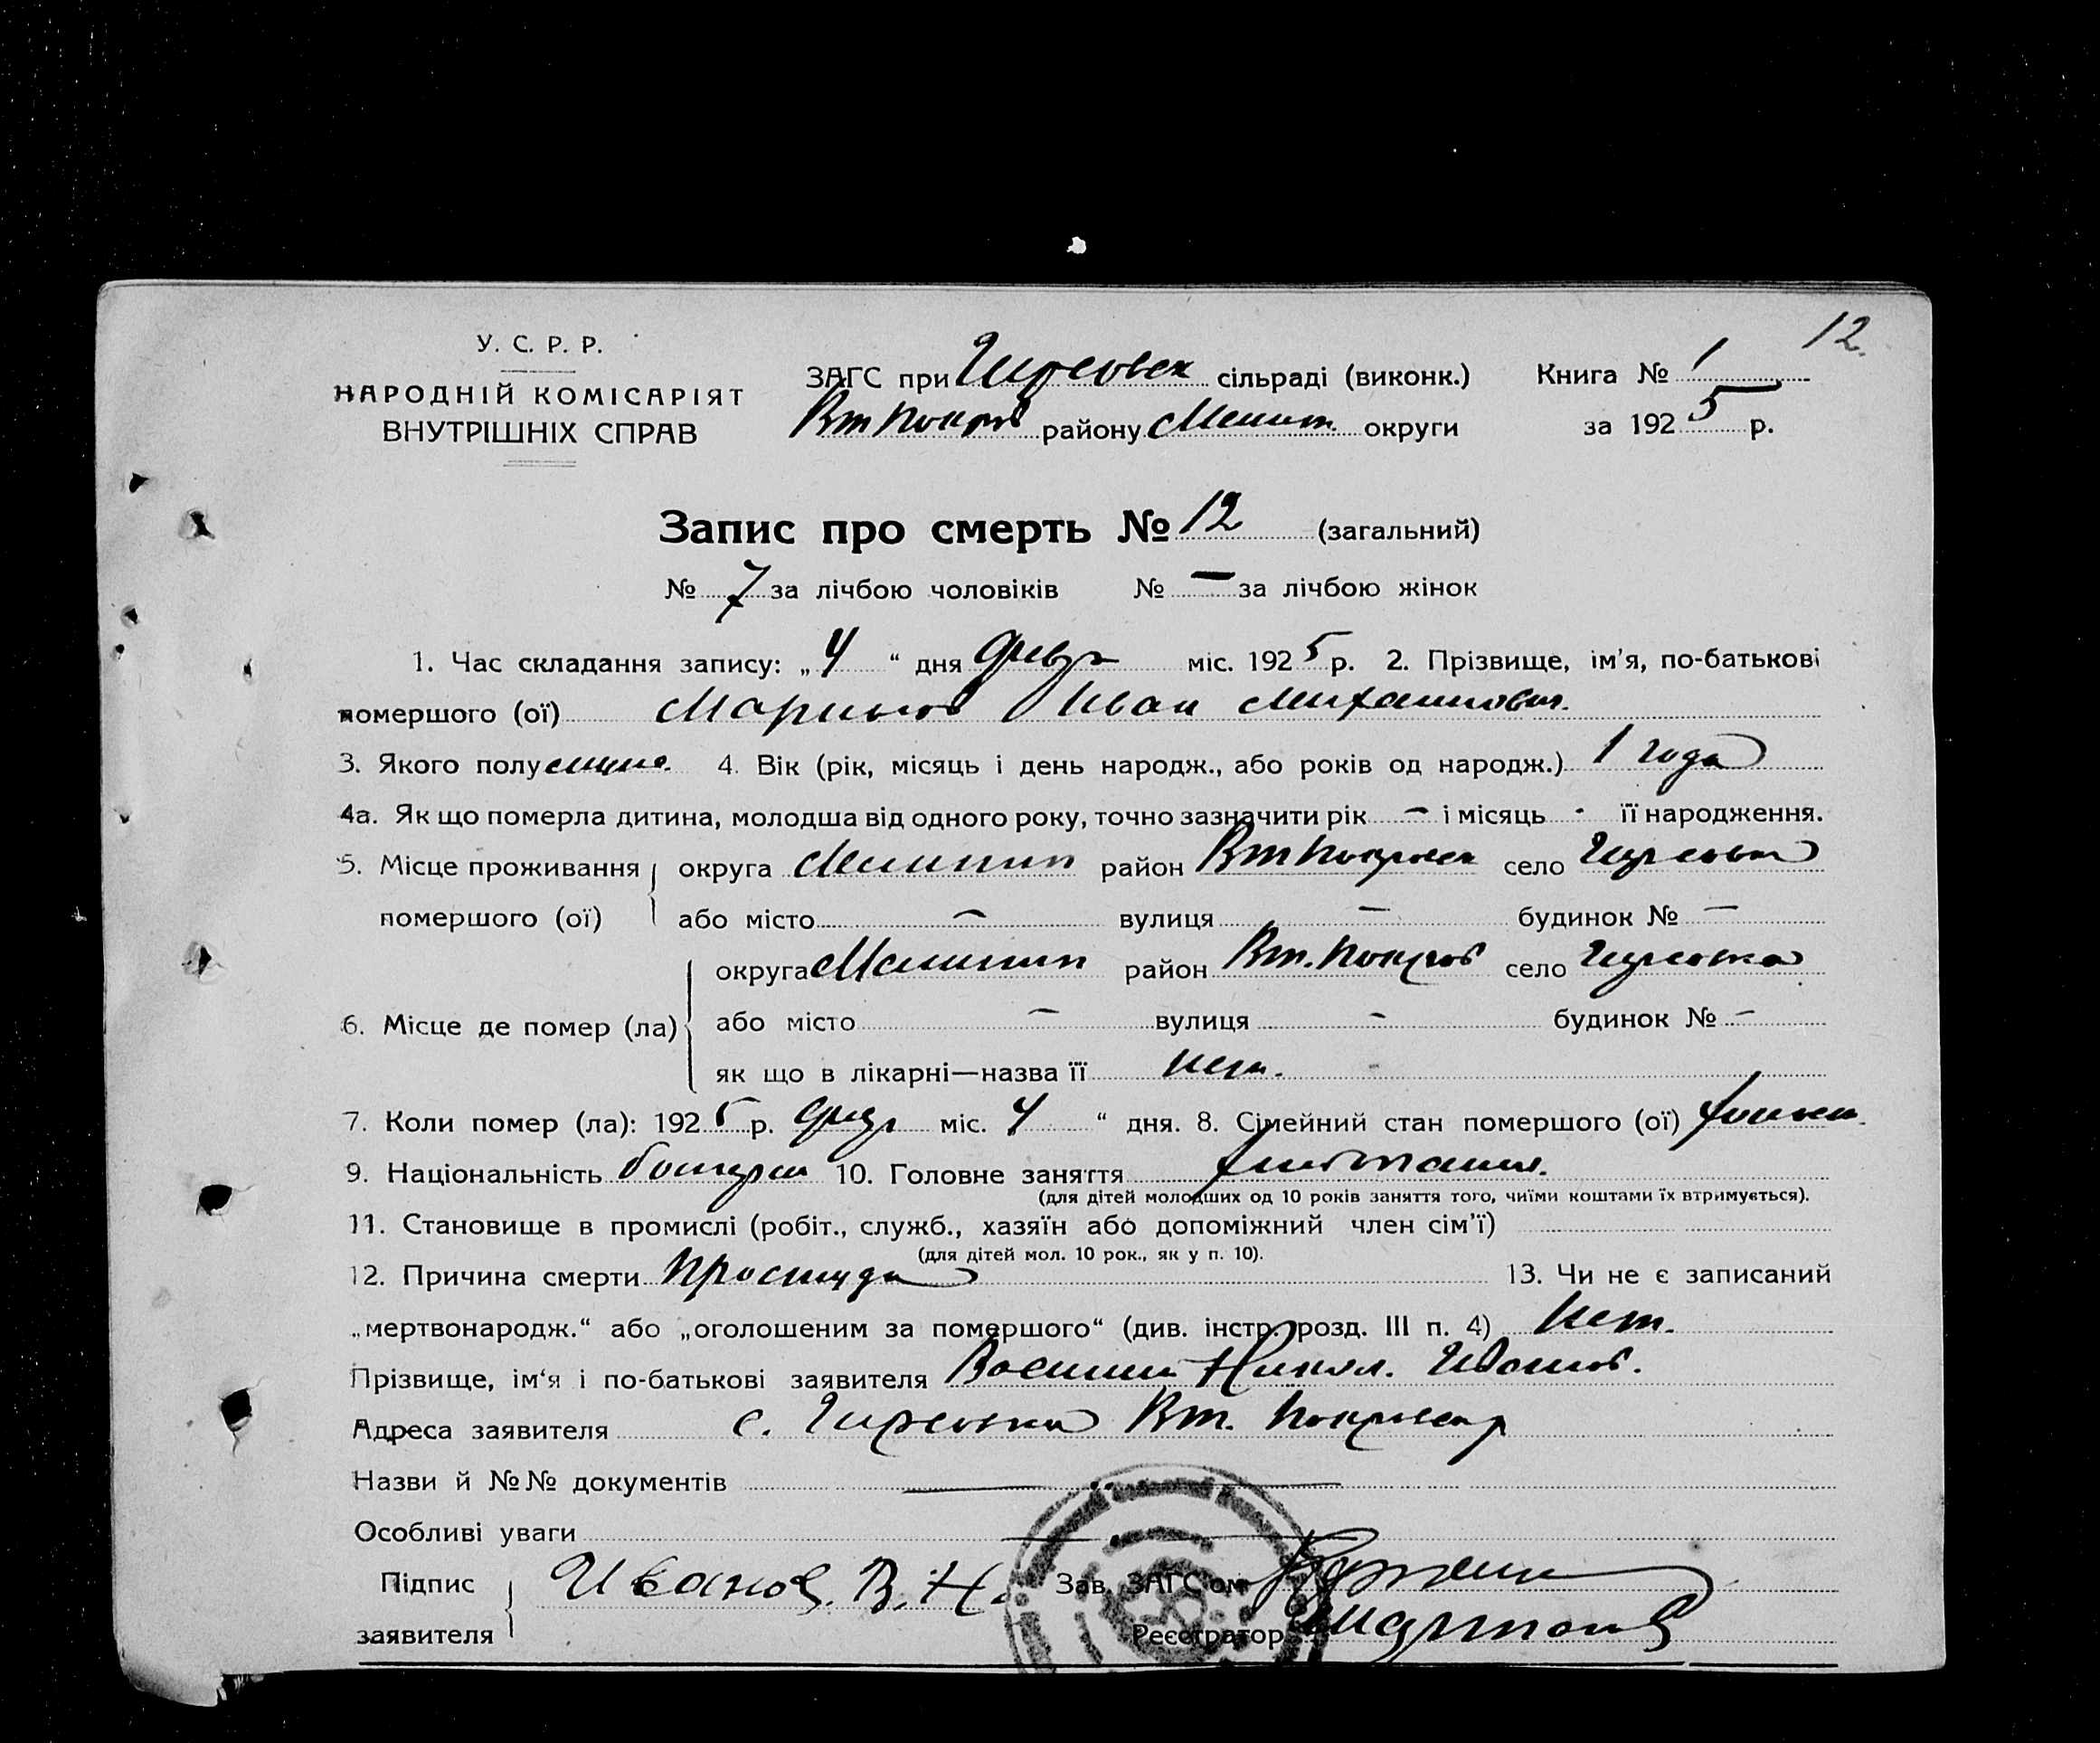 12.
У. С. Р. Р.
НАРОДНІЙ КОМІСАРІЯТ
ВНУТРІШНІХ СПРАВ
ЗАГС при Гирсовск сільраді (виконк.) Книга № 1
Вт Покров району Мелит. округи за 1925 р.
Запис про смерть № 12 (загальний)
№ 7 за лічбою чоловіків № — за лічбою жінок
1. Час складання запису: „4“ дня февр міс. 1925 р. 2. Прізвище, ім'я, по-батькові
помершого (ої) Маринов Иван Михаилович.
3. Якого полу 4. Вік (рік, місяць і день народж., або років од народж.) 1 года
4а. Як що померла дитина, молодша від одного року, точно зазначити рік — і місяць - її народження.
5. Місце проживання округа Мелитоп район Вт Покровск село Гирсовка
помершого (ої) або місто — вулиця — будинок № —
округа Мелитоп район Вт. Покров село Гирсовка
6. Місце де помер (ла) або місто — вулиця - будинок № —
як що в лікарні—назва її нет.
7. Коли помер (ла): 1925 р. февр міс. 4 “ дня. 8. Сімейний стан помершого (ої)
9. Національність болгари 10. Головне заняття
(для дітей молодших од 10 років заняття того, чиїми коштами їх втримується).
11. Становище в промислі (робіт., служб., хазяїн або допоміжний член сім'ї)
(для дітей мол. 10 рок., як у п. 10).
12. Причина смерти простуда 13. Чи не є записаний
„мертвонародж.“ або „оголошеним за помершого“ (див. інстр. розд. III п. 4) нет.
Прізвище, ім'я і по-батькові заявителя Василий Никол. Иванов.
Адреса заявителя с. Гирсовка Вт. Покров р
Назви й №№ документів
Особливі уваги
Підпис Иванов. В. Н. Зав. ЗАГС'ом
заявителя Реєстратор